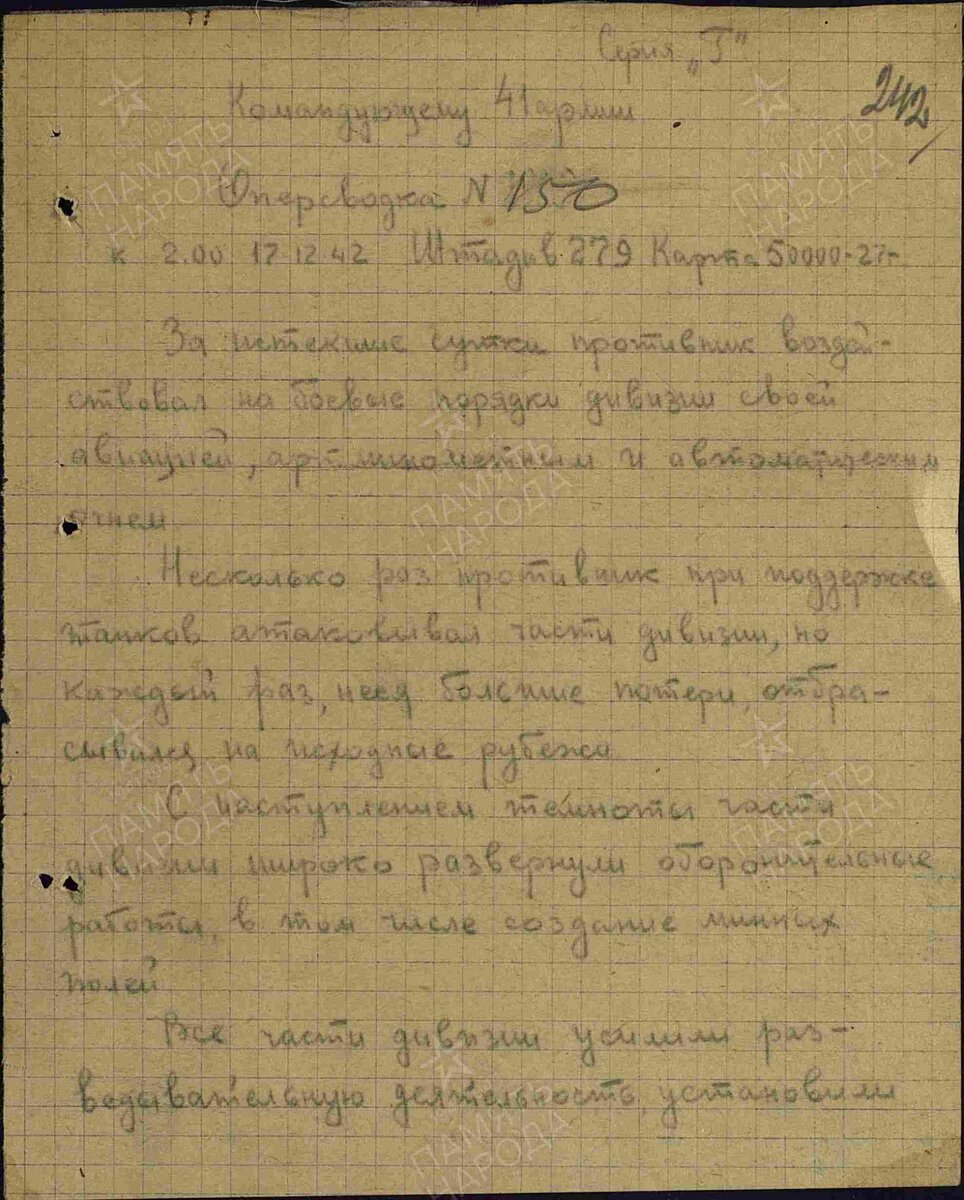 Серия „Г"
242
Командующему 41 армии
Оперсводка N 150
к 2.00 17.12.42 Штадив 279 Карта 50000-27-
За истекшие сутки противник воздей-
ствовал на боевые порядки дивизии своей
авиацией, арт. минометным и автоматическим
огнем
Несколько раз противник при поддержке
танков атаковывал части дивизии, но
каждый раз, неся большие потери, отбра-
сывался на исходные рубежа
С наступлением темноты части
дивизии широко развернули оборонительные
работы, в том числе создание минных
полей
Все части дивизии усилили раз-
ведывательную деятельность, установили
ПАМЯТЬ
НАРОДА
ПАМЯТЬ
НАРОДА
ПАМЯТЬ
НАРОДА
ПАМЯТЬ
НАРОДА
ПАМЯТЬ
НАРОДА
ПАМЯТЬ
НАРОДА